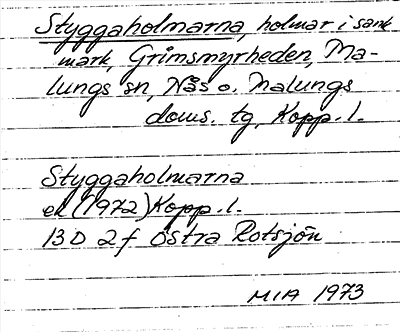 Styggaholmarna, holmar i sank
mark, Grimsmyrheden, Ma-
lungs sn, Nås o. Malungs
doms. tg, Kopp. l.
Styggaholmarna
ek (1972) Kopp. l.
13D 2f Östra Rotsjön
MIA 1973